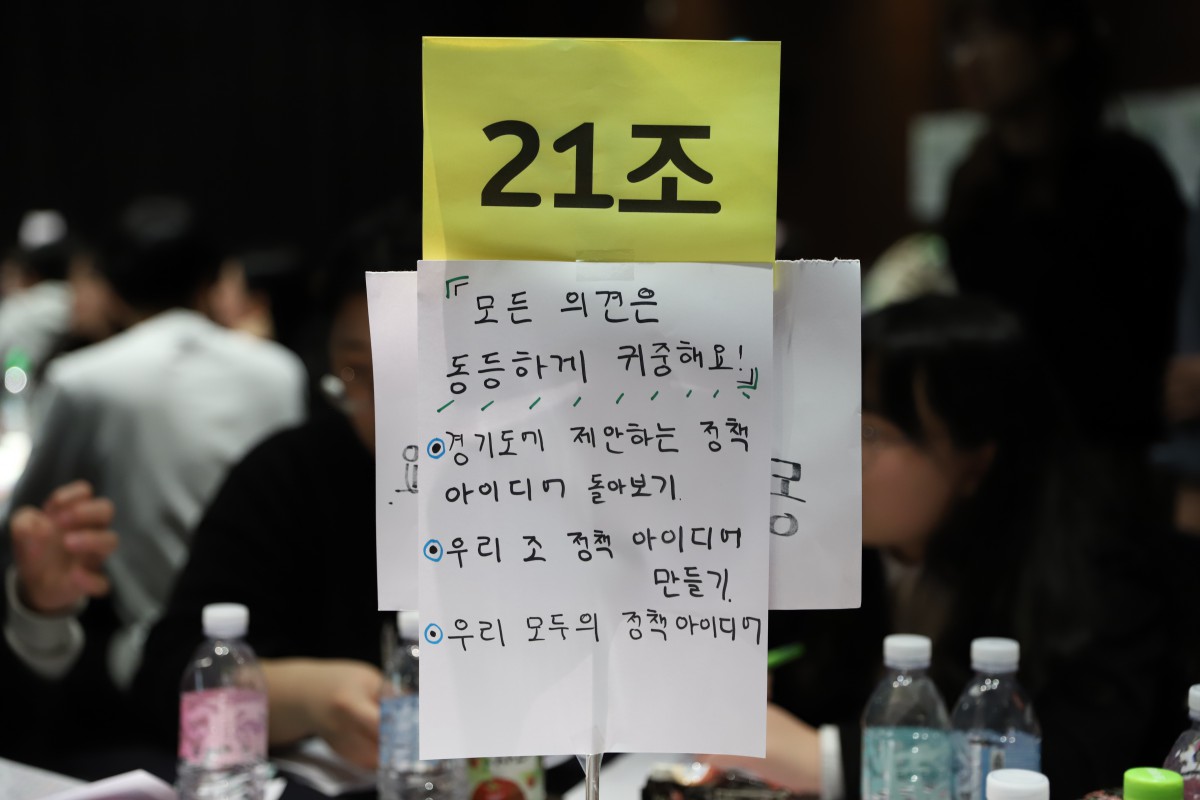 21조
『모든 의견은
동등하게 귀중해요!』
경기도가 제안하는 정책
아이디어 돌아보기.
우리 조 정책 아이디어
만들기.
우리 모두의 정책아이디어